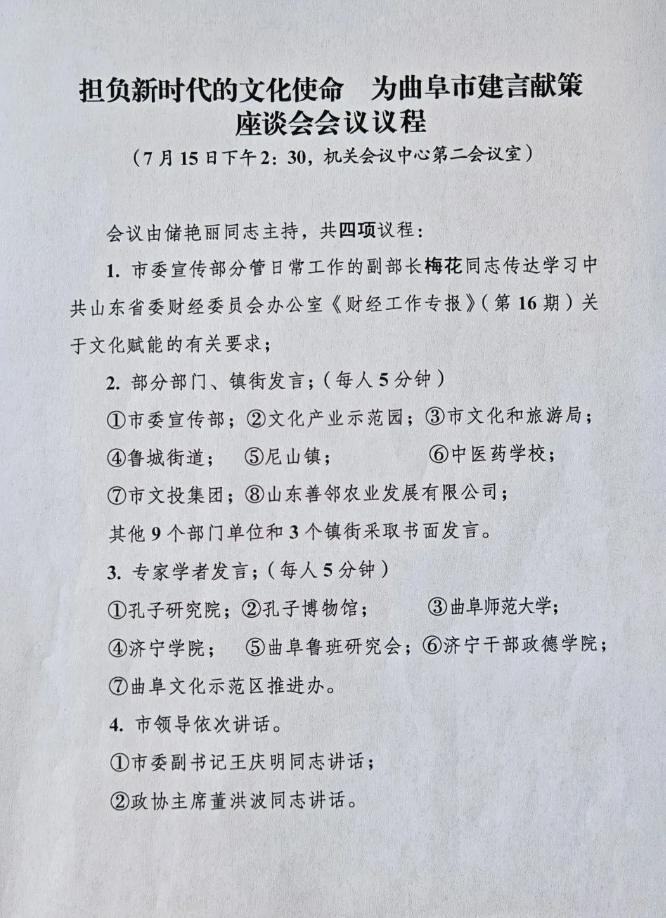 担负新时代的文化使命 为曲阜市建言献策
座谈会会议议程
（7月15日下午2：30，机关会议中心第二会议室）
会议由储艳丽同志主持，共四项议程：
1. 市委宣传部分管日常工作的副部长梅花同志传达学习中
共山东省委财经委员会办公室《财经工作专报》（第16期）关
于文化赋能的有关要求；
2. 部分部门、镇街发言；（每人5分钟）
①市委宣传部；②文化产业示范园；③市文化和旅游局；
④鲁城街道； ⑤尼山镇； ⑥中医药学校；
⑦市文投集团；⑧山东善邻农业发展有限公司；
其他9个部门单位和3个镇街采取书面发言。
3. 专家学者发言；（每人5分钟）
①孔子研究院；②孔子博物馆； ③曲阜师范大学；
④济宁学院； ⑤曲阜鲁班研究会；⑥济宁干部政德学院；
⑦曲阜文化示范区推进办。
4. 市领导依次讲话。
①市委副书记王庆明同志讲话；
②政协主席董洪波同志讲话。